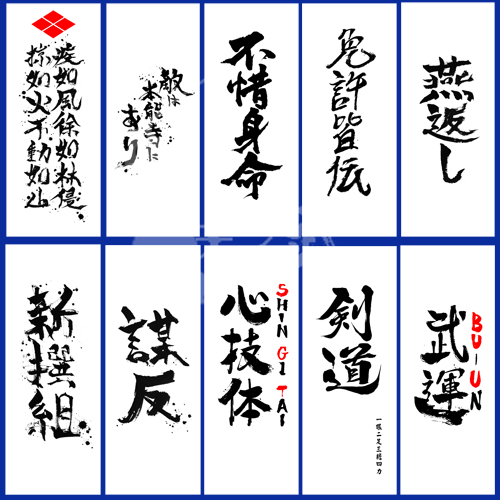 疾如風徐如林侵
掠如火不動如山
敵は
本能寺に
あり
不惜身命
免許皆伝
燕返し
新撰組
謀反
心技体
SHIN GI TAI
剣道
一眼二足三胆四力
武運
BU-UN